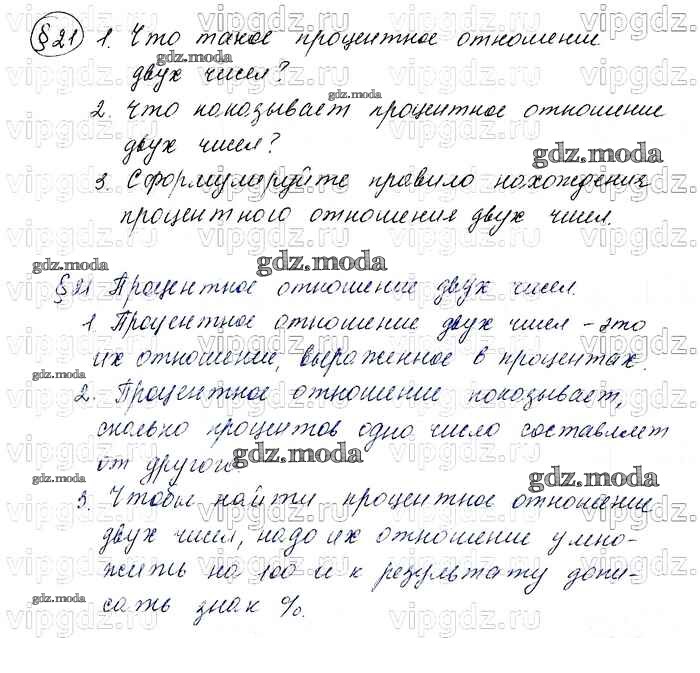 §21 1. Что такое процентное отношение
двух чисел?
2. Что показывает процентное отношение
двух чисел?
3. Сформулируйте правило нахождения
процентного отношения двух чисел.
§21 Процентное отношение двух чисел.
1 Процентное отношение двух чисел - это
их отношение, выраженное в процентах.
2. Процентное отношение показывает,
сколько процентов одно число составляет
от другого.
3. Чтобы найти процентное отношение
двух чисел, надо их отношение умно-
жить на 100 и к результату допи-
сать знак %.
gdz.moda
vipgdz.ru